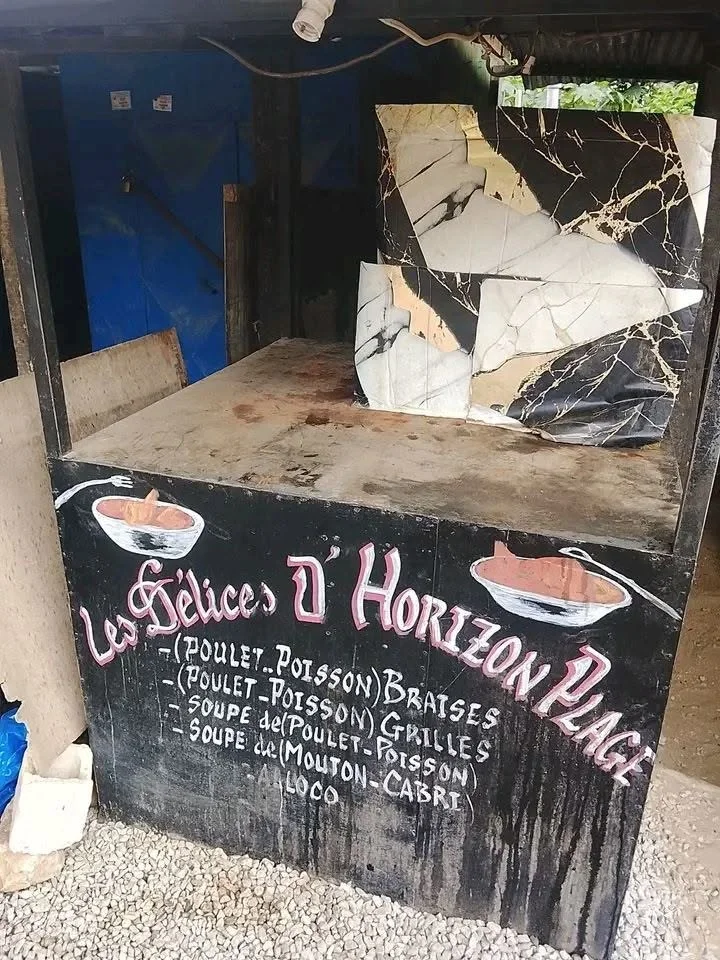 Les Délices D' HORIZON PLAGE
- (POULET-POISSON) BRAISES
- (POULET-POISSON) GRILLES
- SOUPE de (POULET-POISSON)
- SOUPE de (MOUTON-CABRI)
ALLOCO